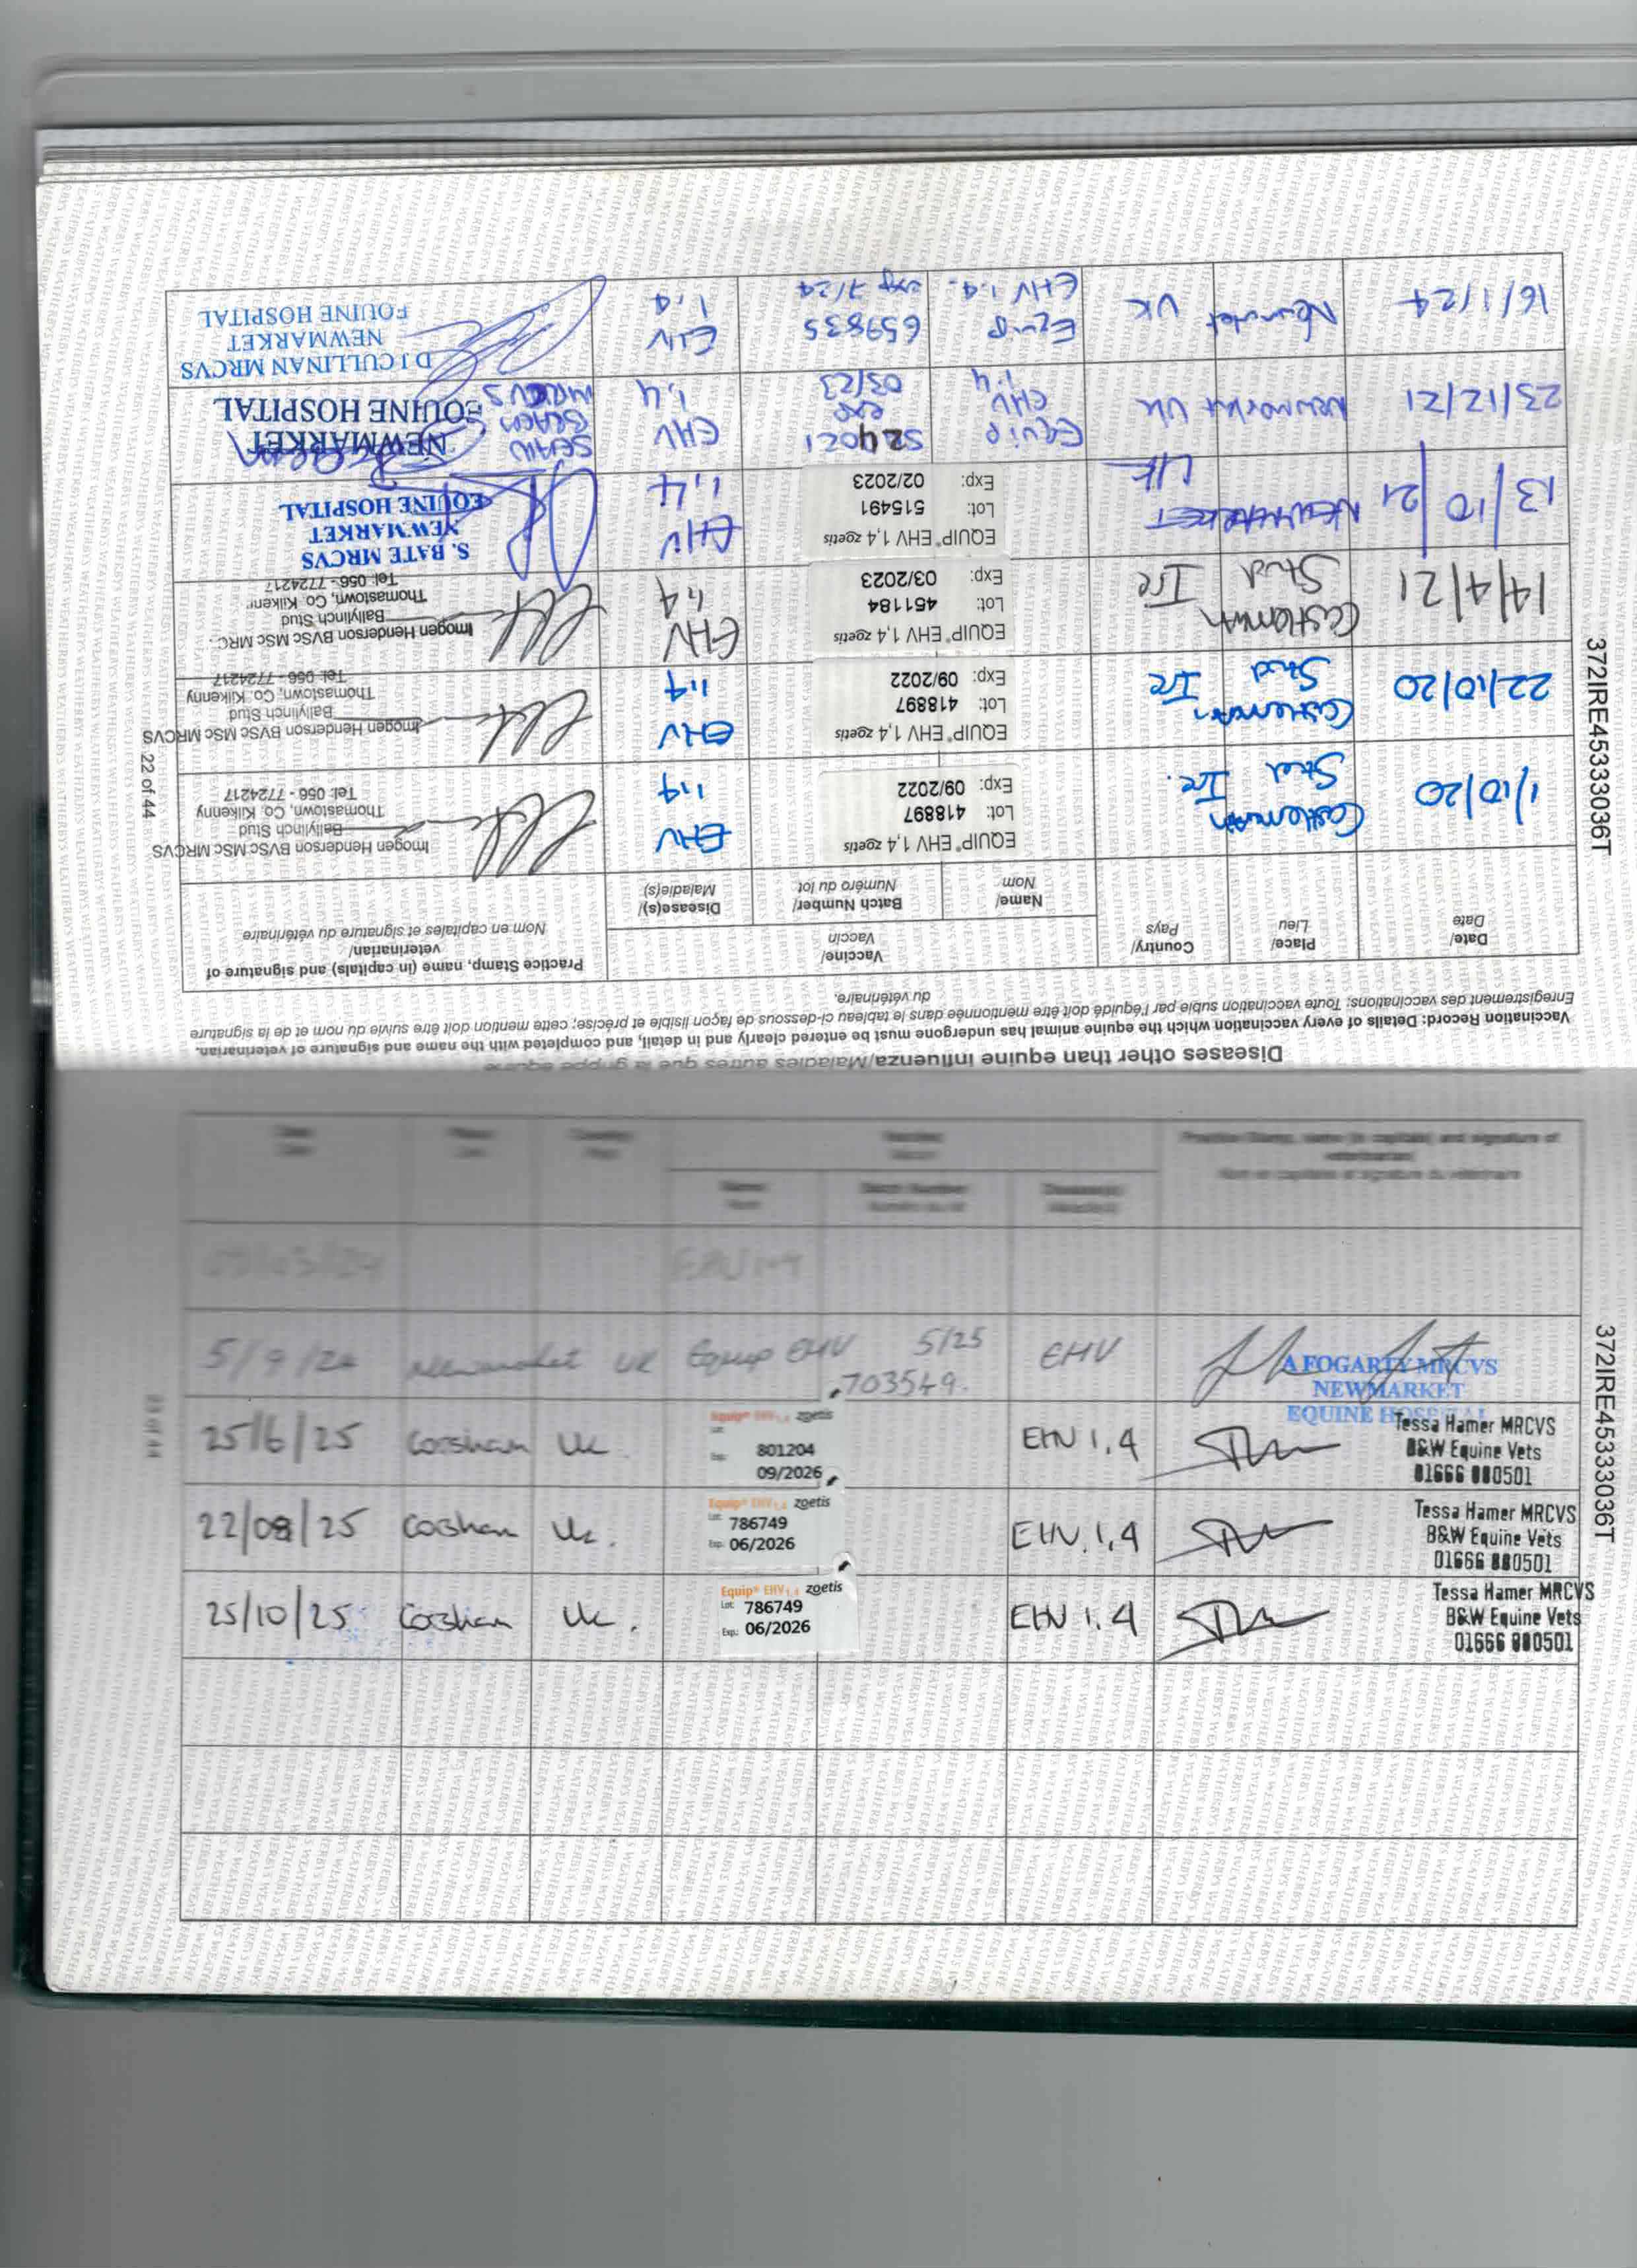 Diseases other than equine influenza/Maladies autres que la grippe équine
Vaccination Record: Details of every vaccination which the equine animal has undergone must be entered clearly and in detail, and completed with the name and signature of veterinarian.
Enregistrement des vaccinations; Toute vaccination subie par l'équidé doit être mentionnée dans le tableau ci-dessous de façon lisible et précise; cette mention doit être suivie du nom et de la signature
du vétérinaire.
Date/
Date
Place/
Lieu
Country/
Pays
Vaccine/
Vaccin
Name/
Nom
Batch Number/
Numéro du lot
Disease(s)/
Maladie(s)
Practice Stamp, name (in capitals) and signature of
veterinarian/
Nom en capitales et signature du vétérinaire
1/10/20
Stud Ire.
EQUIP® EHV 1,4 zoetis
Lot: 418897
Exp: 09/2022
EHV
1,4
Imogen Henderson BVSc MSc MRCVS
Ballylinch Stud
Thomastown, Co. Kilkenny
Tel: 056 - 7724217
22/10/20
Stud Ire
EQUIP® EHV 1,4 zoetis
Lot: 418897
Exp: 09/2022
EHV
1,4
Imogen Henderson BVSc MSc MRCVS
Ballylinch Stud
Thomastown, Co. Kilkenny
Tel: 056 - 7724217
14/4/21
Stud Ire
EQUIP® EHV 1,4 zoetis
Lot: 451184
Exp: 03/2023
EHV
1,4
Imogen Henderson BVSc MSc MRC
Ballylinch Stud
Thomastown, Co. Kilken
Tel: 056 - 7724217
13/10/21
NEWMARKET
EQUIP® EHV 1,4 zoetis
Lot: 515491
Exp: 02/2023
EHV
1,4
S. BATE MRCVS
NEWMARKET
EQUINE HOSPITAL
23/12/21
Newmarket UK
Equip
EHV
1,4
524021
exp
03/23
EHV
1,4
SEAN
MRCVS
NEWMARKET
EQUINE HOSPITAL
16/1/24
Newmarket UK
Equip
EHV 1,4.
659835
exp 7/24
EHV
1,4
D J CULLINAN MRCVS
NEWMARKET
EQUINE HOSPITAL
22 of 44
372IRE45333036T
Date
Place
Country
Vaccine
Name
Batch Number
Disease(s)
Practice Stamp, name (in capitals) and signature of
veterinarian
Nom en capitales et signature du vétérinaire
EHV 1,4
5/9/24 Newmarket UK Equip EHV 5/25
703549.
EHV
A FOGARTY MRCVS
NEWMARKET
EQUINE HOSPITAL
25/6/25 Corsham Uk.
Equip® EHV 1,4 zoetis
801204
09/2026
EHV 1,4
Tessa Hamer MRCVS
B&W Equine Vets
01666 880501
22/08/25 Corsham Uk.
Equip® EHV 1,4 zoetis
Lot: 786749
Exp: 06/2026
EHV 1,4
Tessa Hamer MRCVS
B&W Equine Vets
01666 880501
25/10/25 Corsham Uk.
Equip® EHV 1,4 zoetis
Lot: 786749
Exp.: 06/2026
EHV 1,4
Tessa Hamer MRCVS
B&W Equine Vets
01666 880501
372IRE45333036T